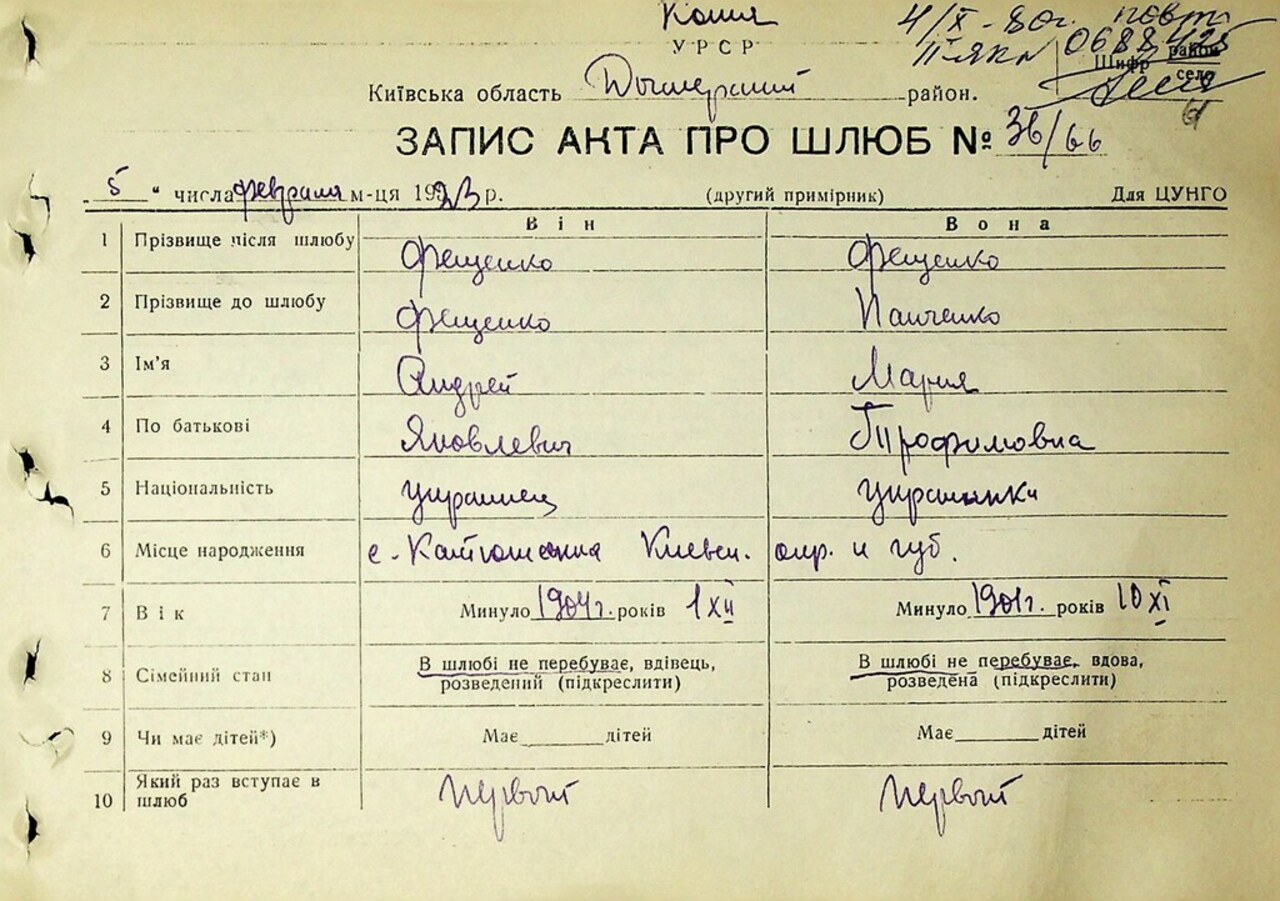 Копия
УРСР
4/X-80г. повт.
II-ЯК № 068842
Шифр район
село
Київська область Дымерский район.
ЗАПИС АКТА ПРО ШЛЮБ № 36/66
"5" числа февраля м-ця 1923 р. (другий примірник) Для ЦУНГО
Він Вона
1 Прізвище після шлюбу Фещенко Фещенко
2 Прізвище до шлюбу Фещенко Панченко
3 Ім'я Андрей Мария
4 По батькові Яковлевич Трофимовна
5 Національність украинец украинка
6 Місце народження с. Катюжанка Киевск. окр. и губ.
7 Вік Минуло 1904г. років 1 XII Минуло 1901г. років 10 XI
8 Сімейний стан В шлюбі не перебуває, вдівець, В шлюбі не перебуває, вдова,
розведений (підкреслити) розведена (підкреслити)
9 Чи має дітей*) Має дітей Має дітей
10 Який раз вступає в шлюб первый первый